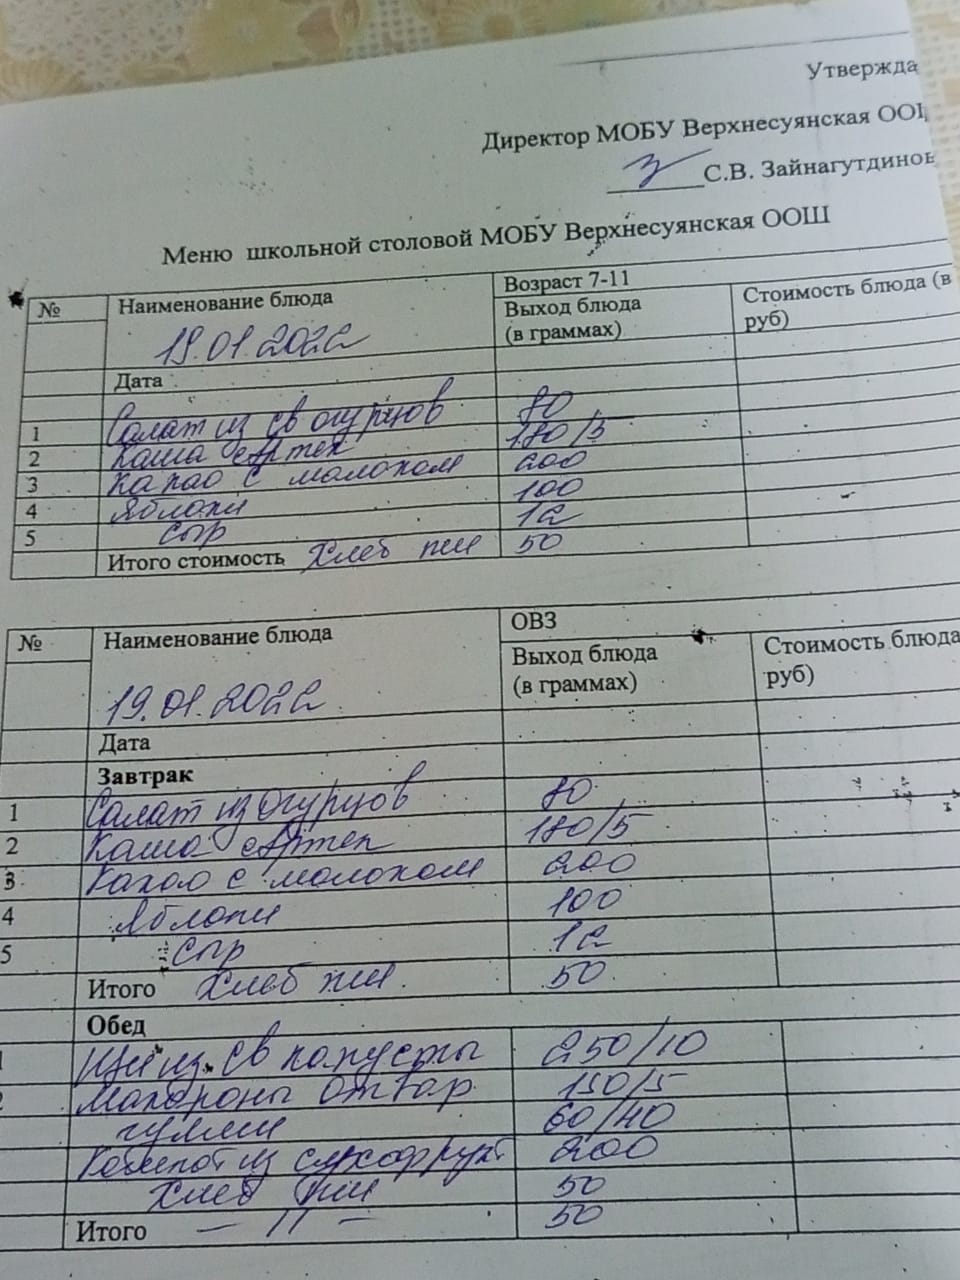 Утвержда
Директор МОБУ Верхнесуянская ООШ
С.В. Зайнагутдинов
Меню школьной столовой МОБУ Верхнесуянская ООШ
№ Наименование блюда Возраст 7-11
Выход блюда (в граммах) Стоимость блюда (в руб)
19.01.2022
Дата
1 Салат из св огурцов 80
2 Каша «Артек 180/5
3 Какао с молоком 200
4 Яблоки 100
5 сыр 12
Итого стоимость Хлеб пш 50
№ Наименование блюда ОВЗ
Выход блюда (в граммах) Стоимость блюда руб)
19.01.2022
Дата
Завтрак
1 Салат из огурцов 80
2 Каша «Артек 180/5
3 Какао с молоком 200
4 Яблоки 100
5 сыр 12
Итого Хлеб пш. 50
Обед
1 Щи из св капусты 250/10
2 Макароны отвар 150/5
гуляш 60/40
Компот из сухофрукт 200
Хлеб пш 50
Итого — 11 — 50